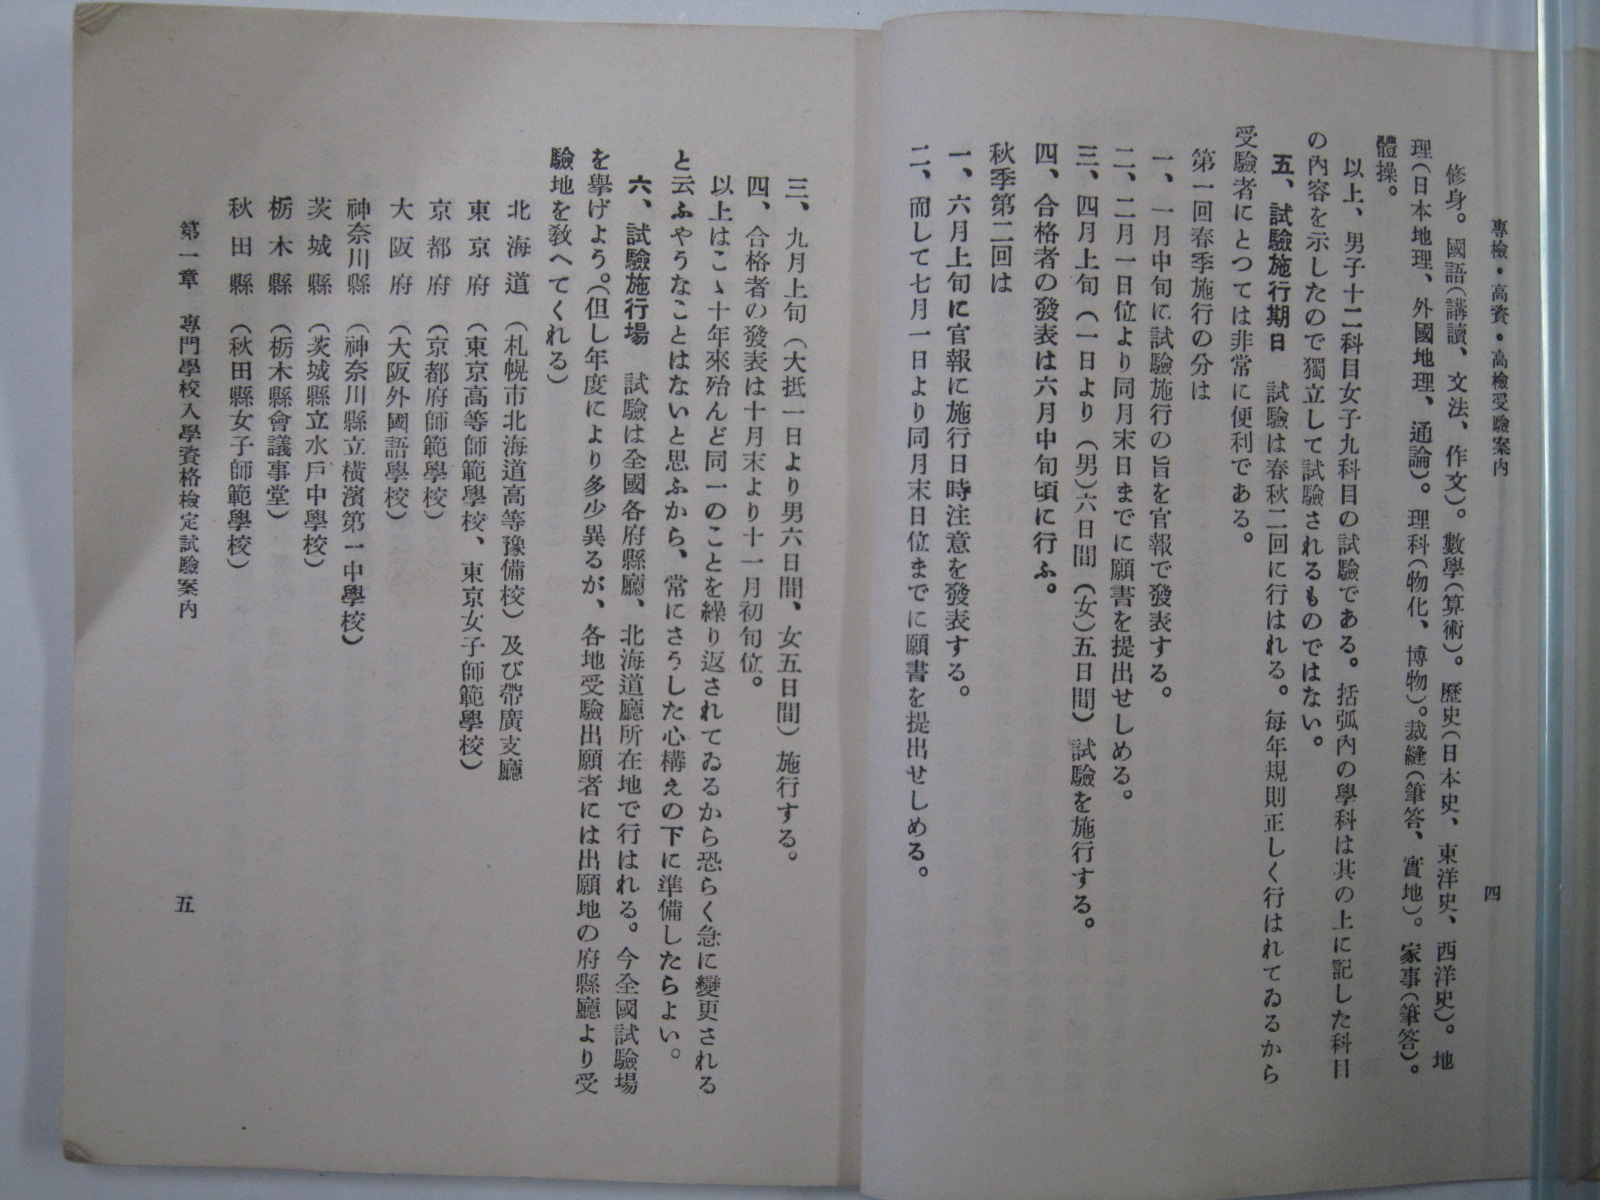 專檢・高資・高檢受驗案內
四
修身。國語(講讀、文法、作文)。數學(算術)。歷史(日本史、東洋史、西洋史)。地
理(日本地理、外國地理、通論)。理科(物化、博物)。裁縫(筆答、實地)。家事(筆答)。
體操。
以上、男子十二科目女子九科目の試驗である。括弧內の學科は其の上に記した科目
の內容を示したので獨立して試驗されるものではない。
五、試驗施行期日　試驗は春秋二回に行はれる。每年規則正しく行はれてゐるから
受驗者にとつては非常に便利である。
第一回春季施行の分は
一、一月中旬に試驗施行の旨を官報で發表する。
二、二月一日位より同月末日までに願書を提出せしめる。
三、四月上旬(一日より(男)六日間(女)五日間)試驗を施行する。
四、合格者の發表は六月中旬頃に行ふ。
秋季第二回は
一、六月上旬に官報に施行日時注意を發表する。
二、而して七月一日より同月末日位までに願書を提出せしめる。
三、九月上旬(大抵一日より男六日間、女五日間)施行する。
四、合格者の發表は十月末より十一月初旬位。
以上はこゝ十年來殆んど同一のことを繰り返されてゐるから恐らく急に變更される
と云ふやうなことはないと思ふから、常にさうした心構えの下に準備したらよい。
六、試驗施行場　試驗は全國各府縣廳、北海道廳所在地で行はれる。今全國試驗場
を擧げよう。(但し年度により多少異るが、各地受驗出願者には出願地の府縣廳より受
驗地を敎へてくれる)
北海道　(札幌市北海道高等豫備校)及び帶廣支廳
東京府　(東京高等師範學校、東京女子師範學校)
京都府　(京都府師範學校)
大阪府　(大阪外國語學校)
神奈川縣　(神奈川縣立橫濱第一中學校)
茨城縣　(茨城縣立水戶中學校)
栃木縣　(栃木縣會議事堂)
秋田縣　(秋田縣女子師範學校)
第一章　專門學校入學資格檢定試驗案內
五